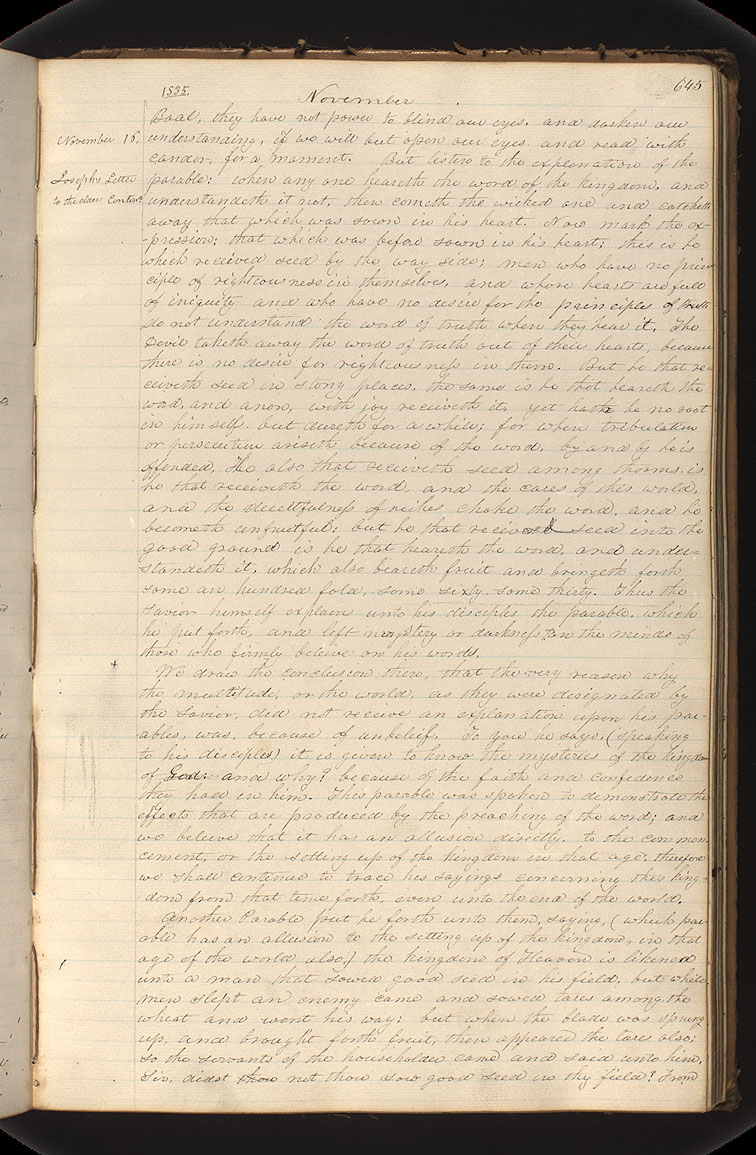 1835.
November
645
November 16.
Joseph's Letter
to the elders Contin.
Baal, they have not power to blind our eyes, and darken our
understanding, if we will but open our eyes and read with
candor, for a moment. But listen to the explanation of the
parable: when any one heareth the word of the kingdom, and
understandeth it not, then cometh the wicked one and catcheth
away that which was sown in his heart. Now mark the ex-
-pression; that which was before sown in his heart; this is he
which received seed by the way side; men who have no prin-
ciple of righteousness in themselves, and whose hearts are full
of iniquity and who have no desire for the principles of truth
do not understand the word of truth when they hear it. The
Devil taketh away the word of truth out of their hearts, because
there is no desire for righteousness in them. But he that re-
ceiveth seed in stony places, the same is he that heareth the
word, and anon, with joy receiveth it, yet hath he no root
in himself but dureth for a while; for when tribulation
or persecution ariseth because of the word, by and by he is
offended, He also that receiveth seed among thorns, is
he that receiveth the word, and the cares of this world,
and the deceitfulness of riches choke the word, and he
becometh unfruitful: but he that received seed into the
good ground is he that heareth the word, and under-
-standeth it, which also beareth fruit and bringeth forth
some an hundred fold, some sixty, some thirty. Thus the
Savior himself explain unto his disciples the parable, which
he put forth, and left no mystery or darkness on the minds of
those who firmly believe on his words,
We draw the conclusion then, that the very reason why
the multitude, or the world, as they were designated by
the Savior, did not receive an explanation upon his par-
ables, was, because of unbelief. To you he says, (speaking
to his disciples) it is given to know the mysteries of the kingdom
of God: and why? because of the faith and confidence
they had in him. This parable was spoken to demonstrate the
effects that are produced by the preaching of the word; and
we believe that it has an allusion directly, to the commen-
cement, or the setting up of the kingdom in that age; therefore
we shall continue to trace his sayings concerning this king-
dom from that time forth, even unto the end of the world.
Another Parable put he forth unto them, saying, (which par-
able has an allusion to the setting up of the kingdom, in that
age of the world also.) the kingdom of Heaven is likened
unto a man that sowed good seed in his field, but while
men slept an enemy came and sowed tares among the
wheat and went his way; but when the blade was sprung
up, and brought forth fruit, then appeared the tares also;
so the servants of the householder came and said unto him,
Sir, didst thou not thou sow good seed in thy field? From